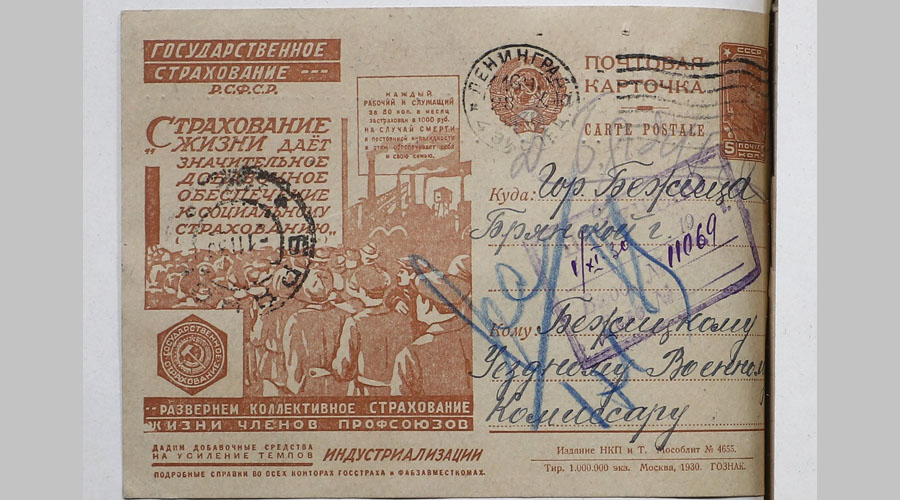 ГОСУДАРСТВЕННОЕ
СТРАХОВАНИЕ ---
Р.С.Ф.С.Р.
КАЖДЫЙ
РАБОЧИЙ И СЛУЖАЩИЙ
за 80 коп. в месяц
застрахован в 1000 руб.
НА СЛУЧАЙ СМЕРТИ
и постоянной инвалидности
и этим обеспечивает себя
и свою семью.
„СТРАХОВАНИЕ
ЖИЗНИ ДАЁТ
ЗНАЧИТЕЛЬНОЕ
ДОБАВОЧНОЕ
ОБЕСПЕЧЕНИЕ
К СОЦИАЛЬНОМУ
СТРАХОВАНИЮ„
ГОСУДАРСТВЕННОЕ
СТРАХОВАНИЕ
--РАЗВЕРНЕМ КОЛЛЕКТИВНОЕ СТРАХОВАНИЕ
ЖИЗНИ ЧЛЕНОВ ПРОФСОЮЗОВ
ДАДИМ ДОБАВОЧНЫЕ СРЕДСТВА
НА УСИЛЕНИЕ ТЕМПОВ ИНДУСТРИАЛИЗАЦИИ
ПОДРОБНЫЕ СПРАВКИ ВО ВСЕХ КОНТОРАХ ГОССТРАХА И ФАБЗАВМЕСТКОМАХ.
ЛЕНИНГРАД
ПОЧТОВАЯ
КАРТОЧКА
CARTE POSTALE
СССР
5
Куда: Гор. Бежица
Брянской г.
1/XI 30
11069
Кому Бежицкому
Уездному Военном
Комиссару
Издание НКП и Т. Мособлит № 4655.
Тир. 1.000.000 экз. Москва, 1930. ГОЗНАК.